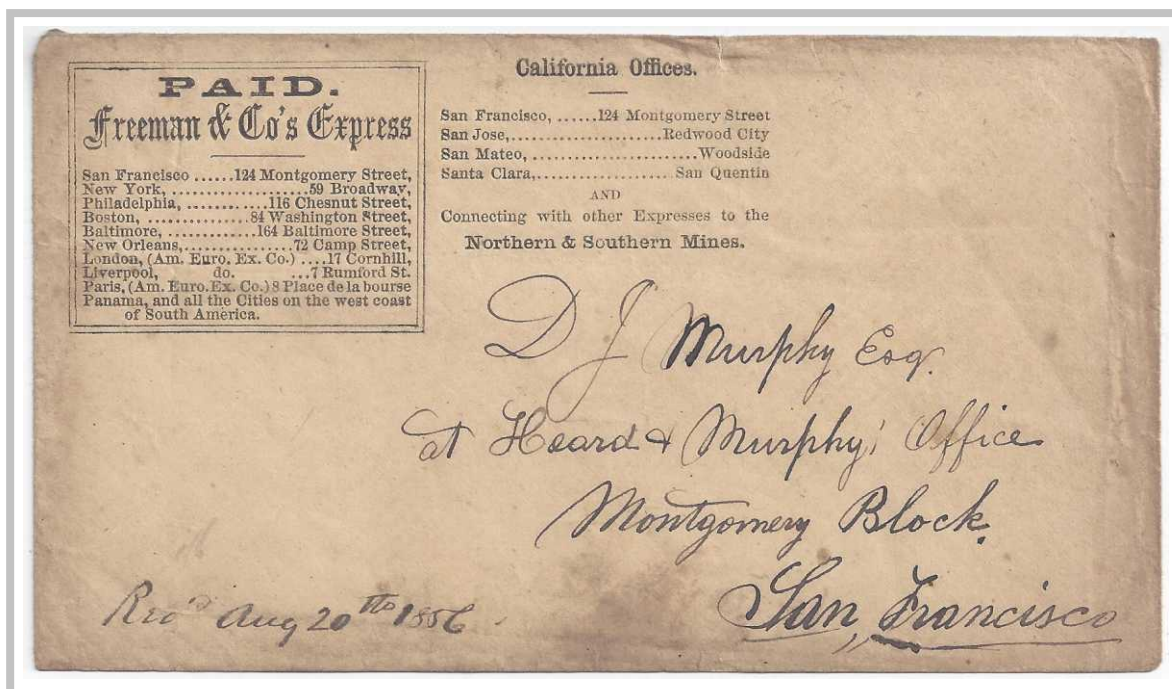 PAID.
Freeman & Co's Express
San Francisco ......124 Montgomery Street,
New York, ..................59 Broadway,
Philadelphia, ............116 Chesnut Street,
Boston, ..............84 Washington Street,
Baltimore, .............164 Baltimore Street,
New Orleans,...............72 Camp Street,
London, (Am. Euro. Ex. Co.) ....17 Cornhill,
Liverpool, do. ...7 Rumford St.
Paris, (Am. Euro. Ex. Co.) 8 Place de la bourse
Panama, and all the Cities on the west coast
of South America.
California Offices.
San Francisco, ......124 Montgomery Street
San Jose,......................Redwood City
San Mateo, ........................Woodside
Santa Clara,................... San Quentin
AND
Connecting with other Expresses to the
Northern & Southern Mines.
D J Murphy Esq.
at Heard & Murphy' Office
Montgomery Block.
San Francisco
Rec'd Aug 20th 1856